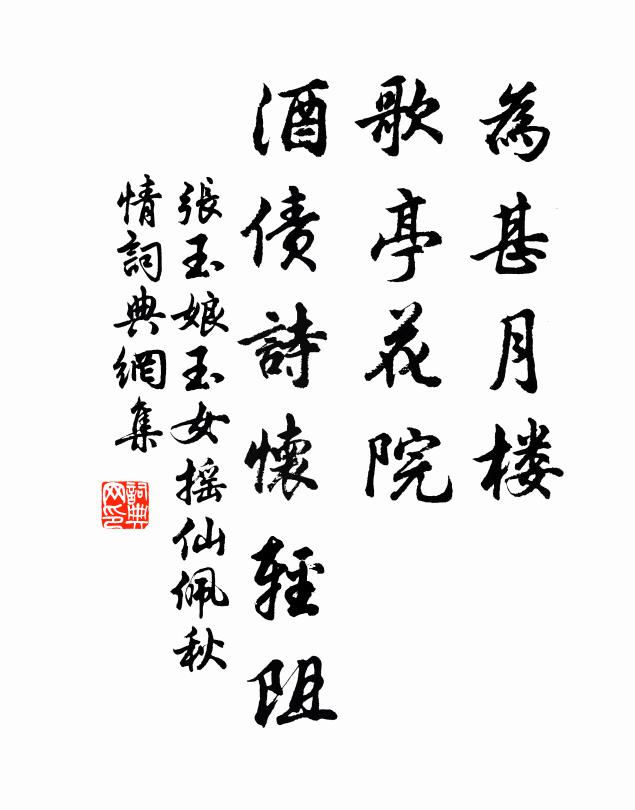 為甚月楼
歌亭花院
酒债詩懷輕阻
張玉娘玉女摇仙佩秋
情詞典網集
詞典
网印